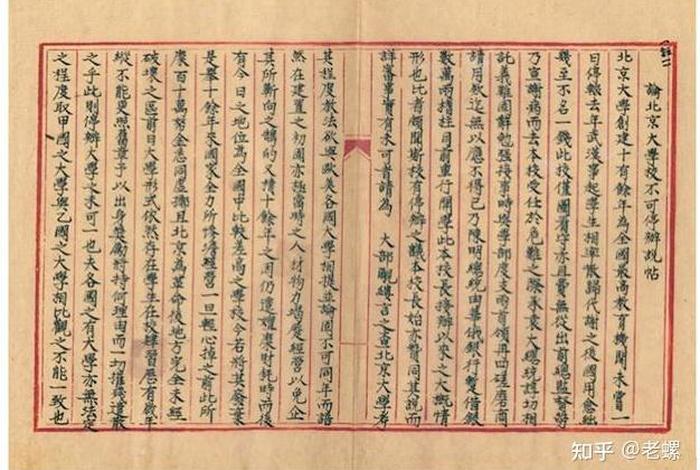 論北京大學校不可停辦說帖
北京大學創建十有餘年為全國最高教育機關未嘗一
日停輟去年武漢事起學生相率散歸代謝之後國用愈絀
幾至不名一錢此校僅圖看守亦且費無從出前總監督勞
乃宣謝病而去本校受任於危難之際承袁大總統諄切相
託義難固辭勉強接事時與學部度支兩首領再四磋磨商
請用款迄無以應不得已乃陳明總統由華俄銀行暫借銀
數萬兩搘柱目前重行開學此本校長接辦以來之大概情
形也比者頗聞斯校有停辦之議本校長始亦贊同其說而
詳審事實有未可者請為 大部覼縷言之查北京大學考
其程度教法欲與歐美各國大學相提並論固不可同年而語
然在建置之初固亦極當時之人材物力竭蹶經營以免企
其所嚮向之鵠的又積十餘年之困仍邅嬗糜財耗時而後
有今日之地位為全國中比較差高之學校今若將其廢棄
是舉十餘年來國家全力所慘澹經營一旦輕心掉之前此所
糜百十萬帑金悉同虛擲且北京為革命後地方完全未經
破壞之區前日大學形式依然存在學生在校肄習歷有歲年
縱不能更照舊章予以出身獎勵將持何理由而一切摧殘遣散
之乎此則停辦大學之未可一也夫各國之有大學亦無法定
之程度取甲國之大學與乙國之大學相比觀之不能一致也
知乎 @老螺